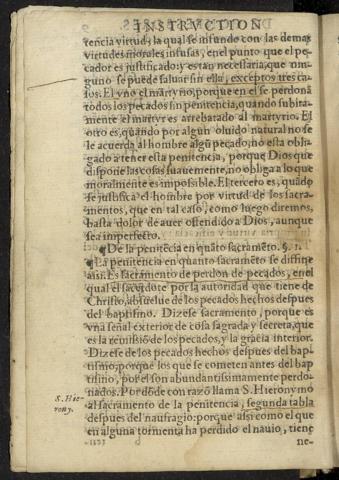 INSTRVCTION
tencia virtud, la qual se infunde con las demas
virtudes morales infusas, en el punto que el pe-
cador es justificado: y es tan necessaria, que nin-
guno se puede saluar sin ella, exceptos tres ca-
sos. El vno el martyrio, porque en el se perdonã
todos los pecados sin penitencia, quando subita-
mente el martyr es arrebatado al martyrio. El
otro es, quando por algun oluido natural no se
le acuerda al hombre algũ pecado, no esta obli-
gado a tener esta penitencia, porque Dios que
dispone las cosas suauemente, no obliga a lo que
moralmente es imposible. El tercero es, quãdo
se justifica el hombre por virtud de los sacra-
mentos, que en tal caso, como luego diremos,
basta dolor de auer offendido a Dios, aunque
sea imperfecto.
¶ De la penitẽcia en quãto sacramẽto. §. 1.
¶ La penitencia en quanto sacramẽto se diffine
assi. Es sacramento de perdon de pecados, en el
qual el sacerdote por la autoridad que tiene de
Christo, absuelue de los pecados hechos despues
del baptismo. Dizese sacramento, porque es
vna señal exterior de cosa sagrada y secreta, que
es la remissiõ de los pecados, y la gracia interior.
Dizese de los pecados hechos despues del bap-
tismo, porque los que se cometen antes del bap
tismo, por el son abundantissimamente perdo-
nados. Por dõde con razõ llama S. Hieronymo
S. Hie-
rony.
al sacramento de la penitencia, segunda tabla
despues del naufragio: porque assi como el que
en alguna tormenta ha perdido el nauio, tiene
ne-